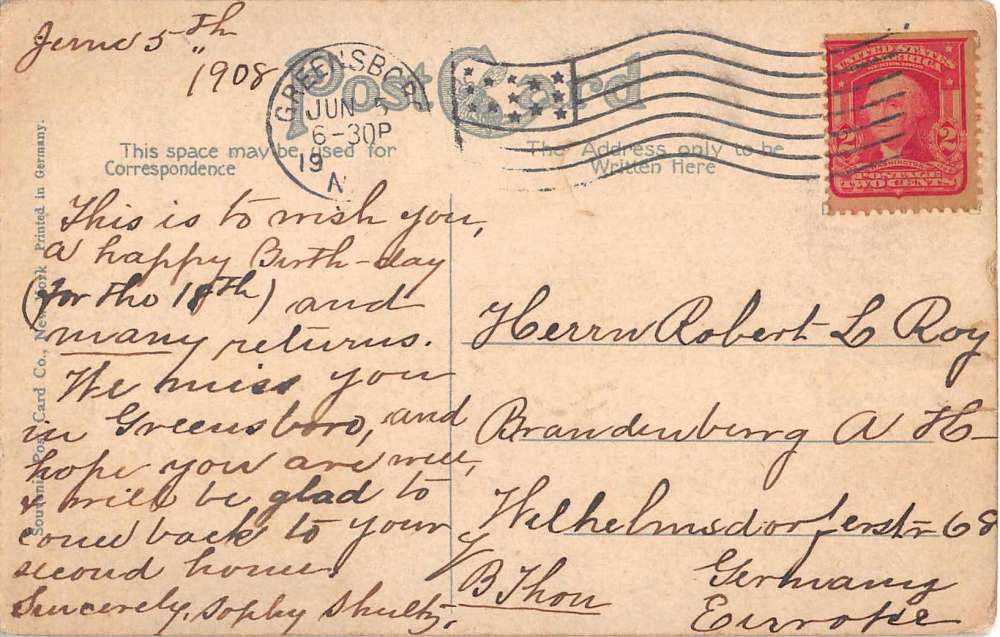 June 5th
1908
Post Card
GREENSBORO
JUN 5
6-30P
19
N
This space may be used for
Correspondence
The Address only to be
Written Here
UNITED STATES
OF AMERICA
2 2
WASHINGTON
POSTAGE
TWO CENTS
Souvenir Post Card Co., New York Printed in Germany.
This is to wish you,
a happy Birth-day
(for the 18th) and
many returns.
We miss you
in Greensboro, and
hope you are well,
& will be glad to
come back to your
second home.
Sincerely, Sophy Shultz,
Herrn Robert L Roy
Brandenburg A H-
Wilhelmsdorferstr 68
B Thon
Germany
Europe